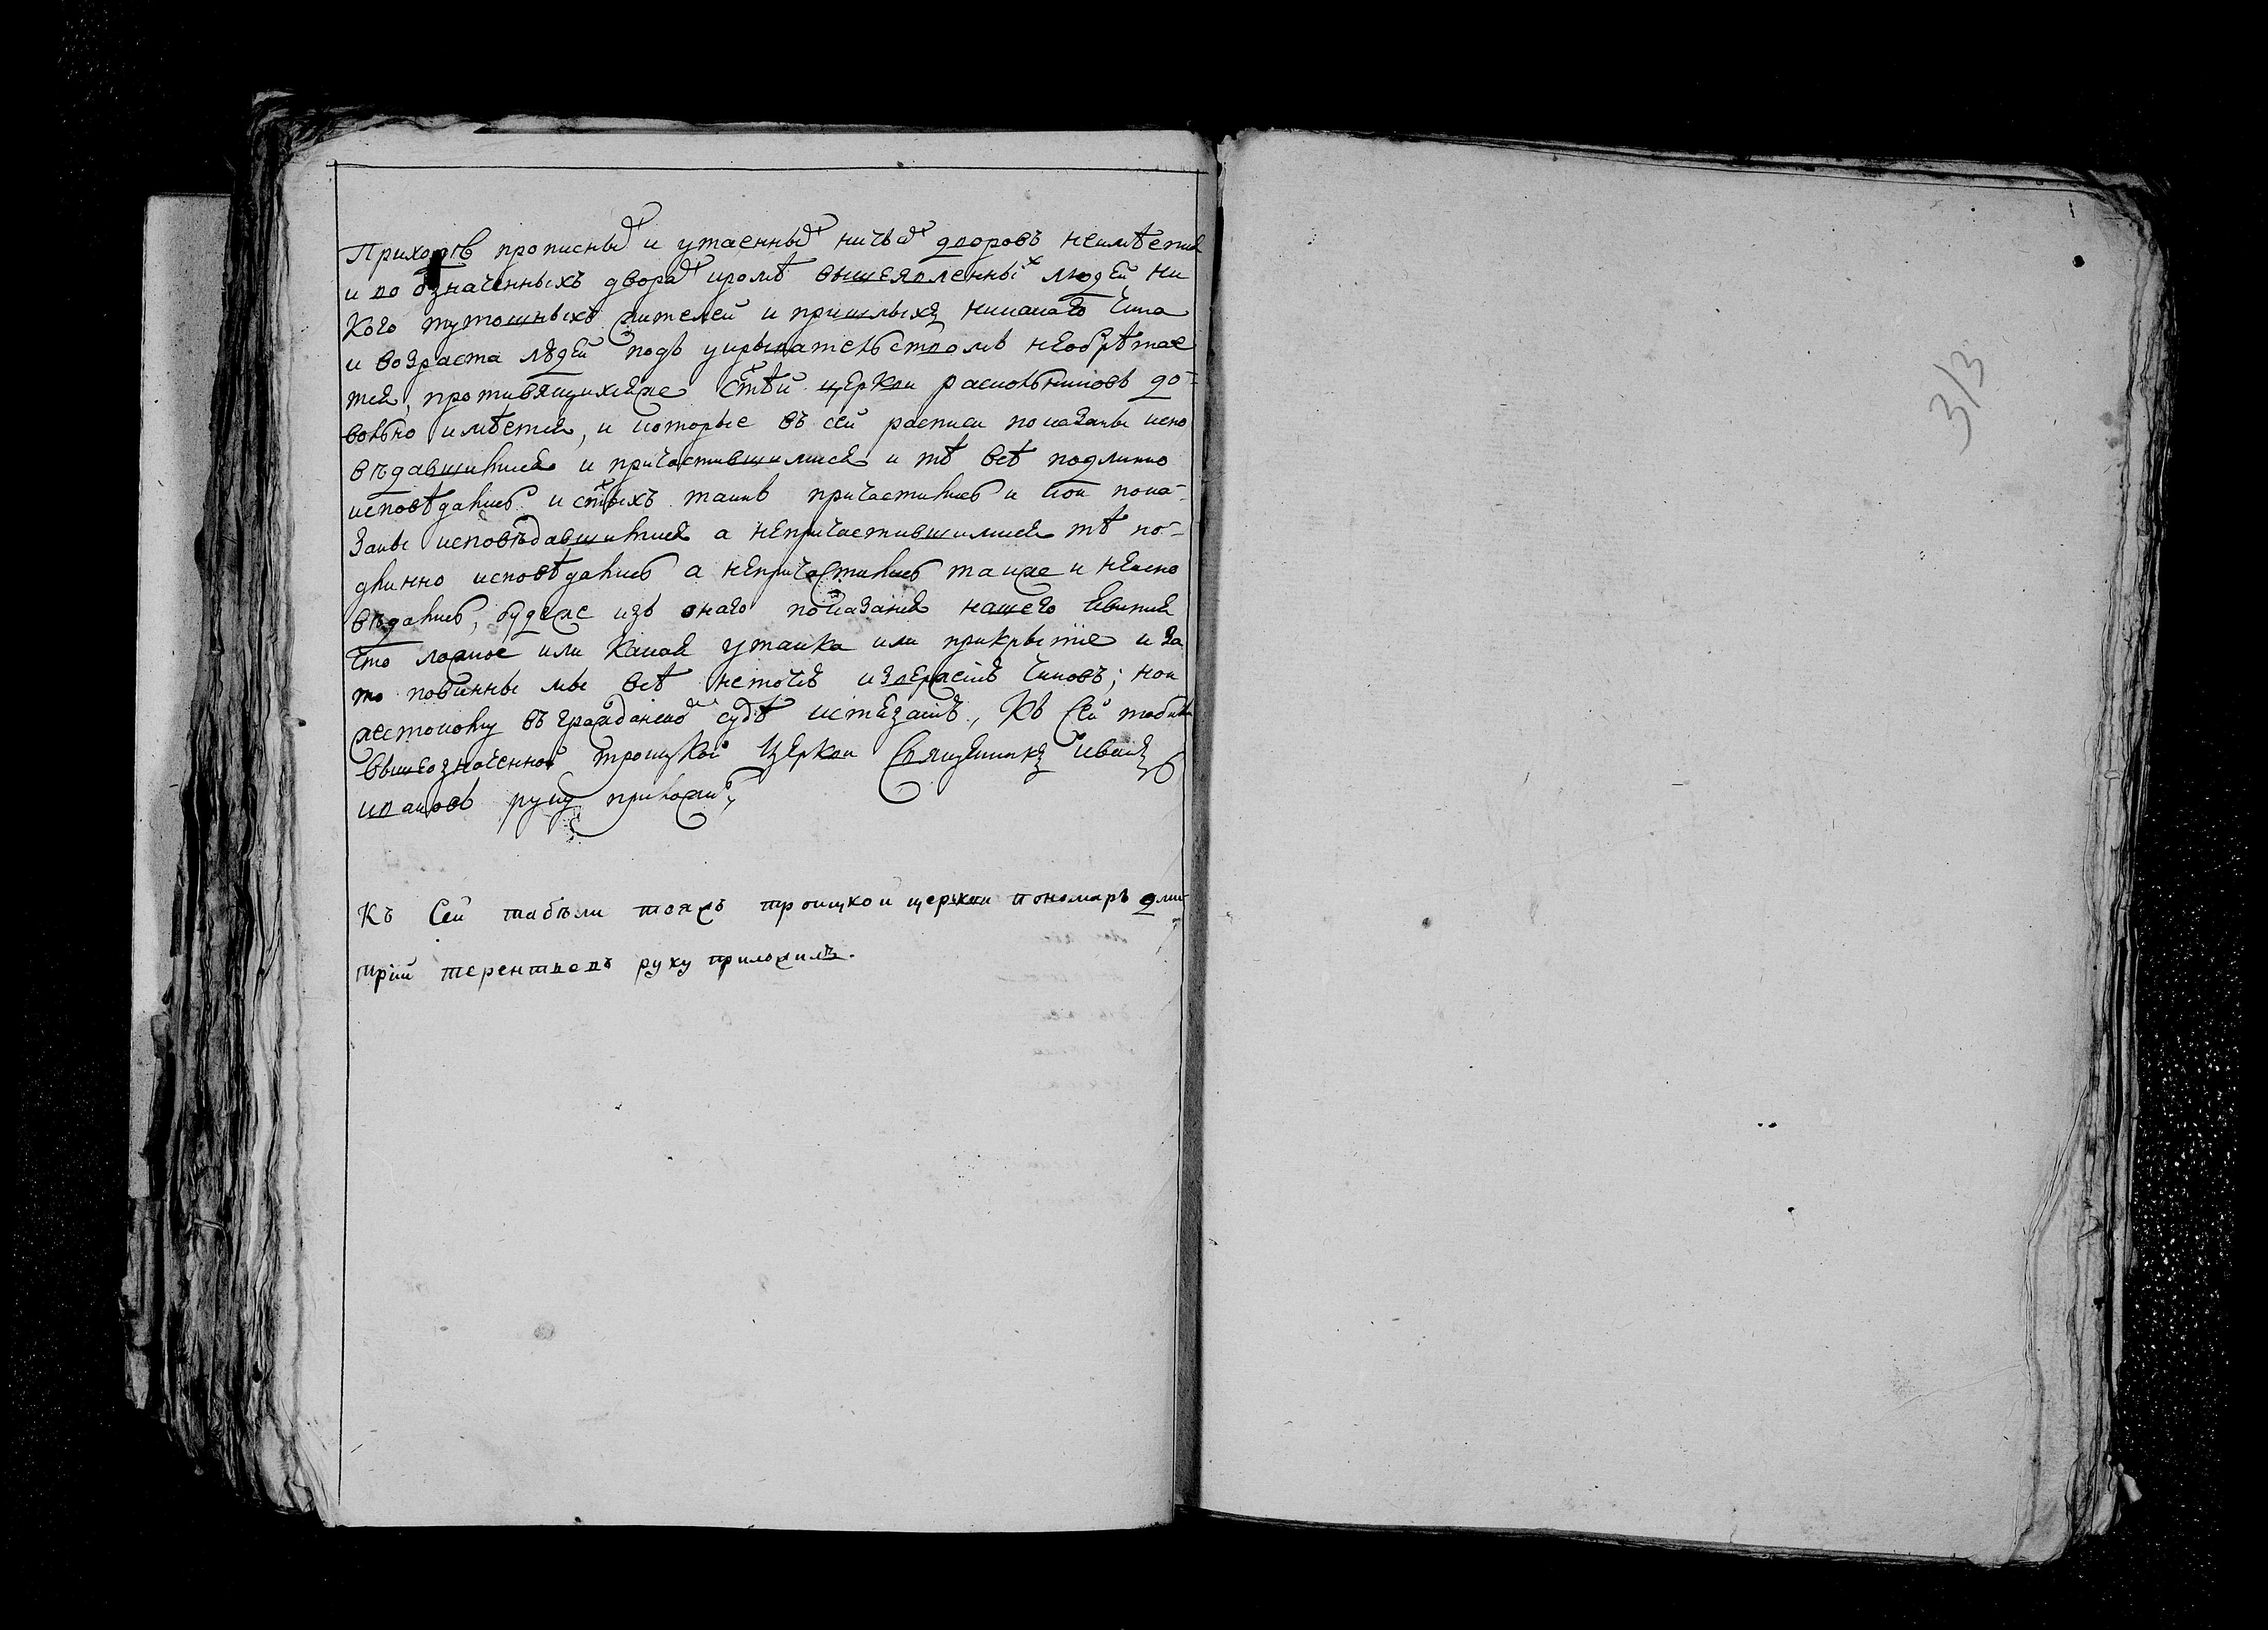 Приходѣ прописныхъ и утаенныхъ ничьихъ дворовъ неимѣетца
и во означенныхъ дворахъ кромѣ вышеявленныхъ людей ни
кого тутошныхъ жителей и пришлыхъ никакаго чина
и возраста людей подъ укрывательствомъ необрѣтае
тся, противящихсяже стѣй церкви раскольниковъ до-
вольно имѣется, и которые въ сей росписи показаны испо
вѣдавшимися и причастившимися и тѣ всѣ подлинно
исповѣдались и стыхъ таинъ причастились и кои пока-
заны исповѣдавшимися а непричастившимися тѣ по-
длинно исповѣдались а непричастились также и неиспо
вѣдались, будеже изъ онаго показания нашего явится
что ложное или какая утайка или прикрытіе и за
то повинны мы всѣ неточію изверженію чиновъ; но и
жестокому въ гражданскомъ судѣ истязанію, Къ сей табели
вышеозначенной троицкой церкви Священникъ Иванъ
ивановъ руку приложилъ
Къ Сей табѣли тояжъ троицкои церкви пономарь дми
трїй терентьевъ руку приложилъ.
313